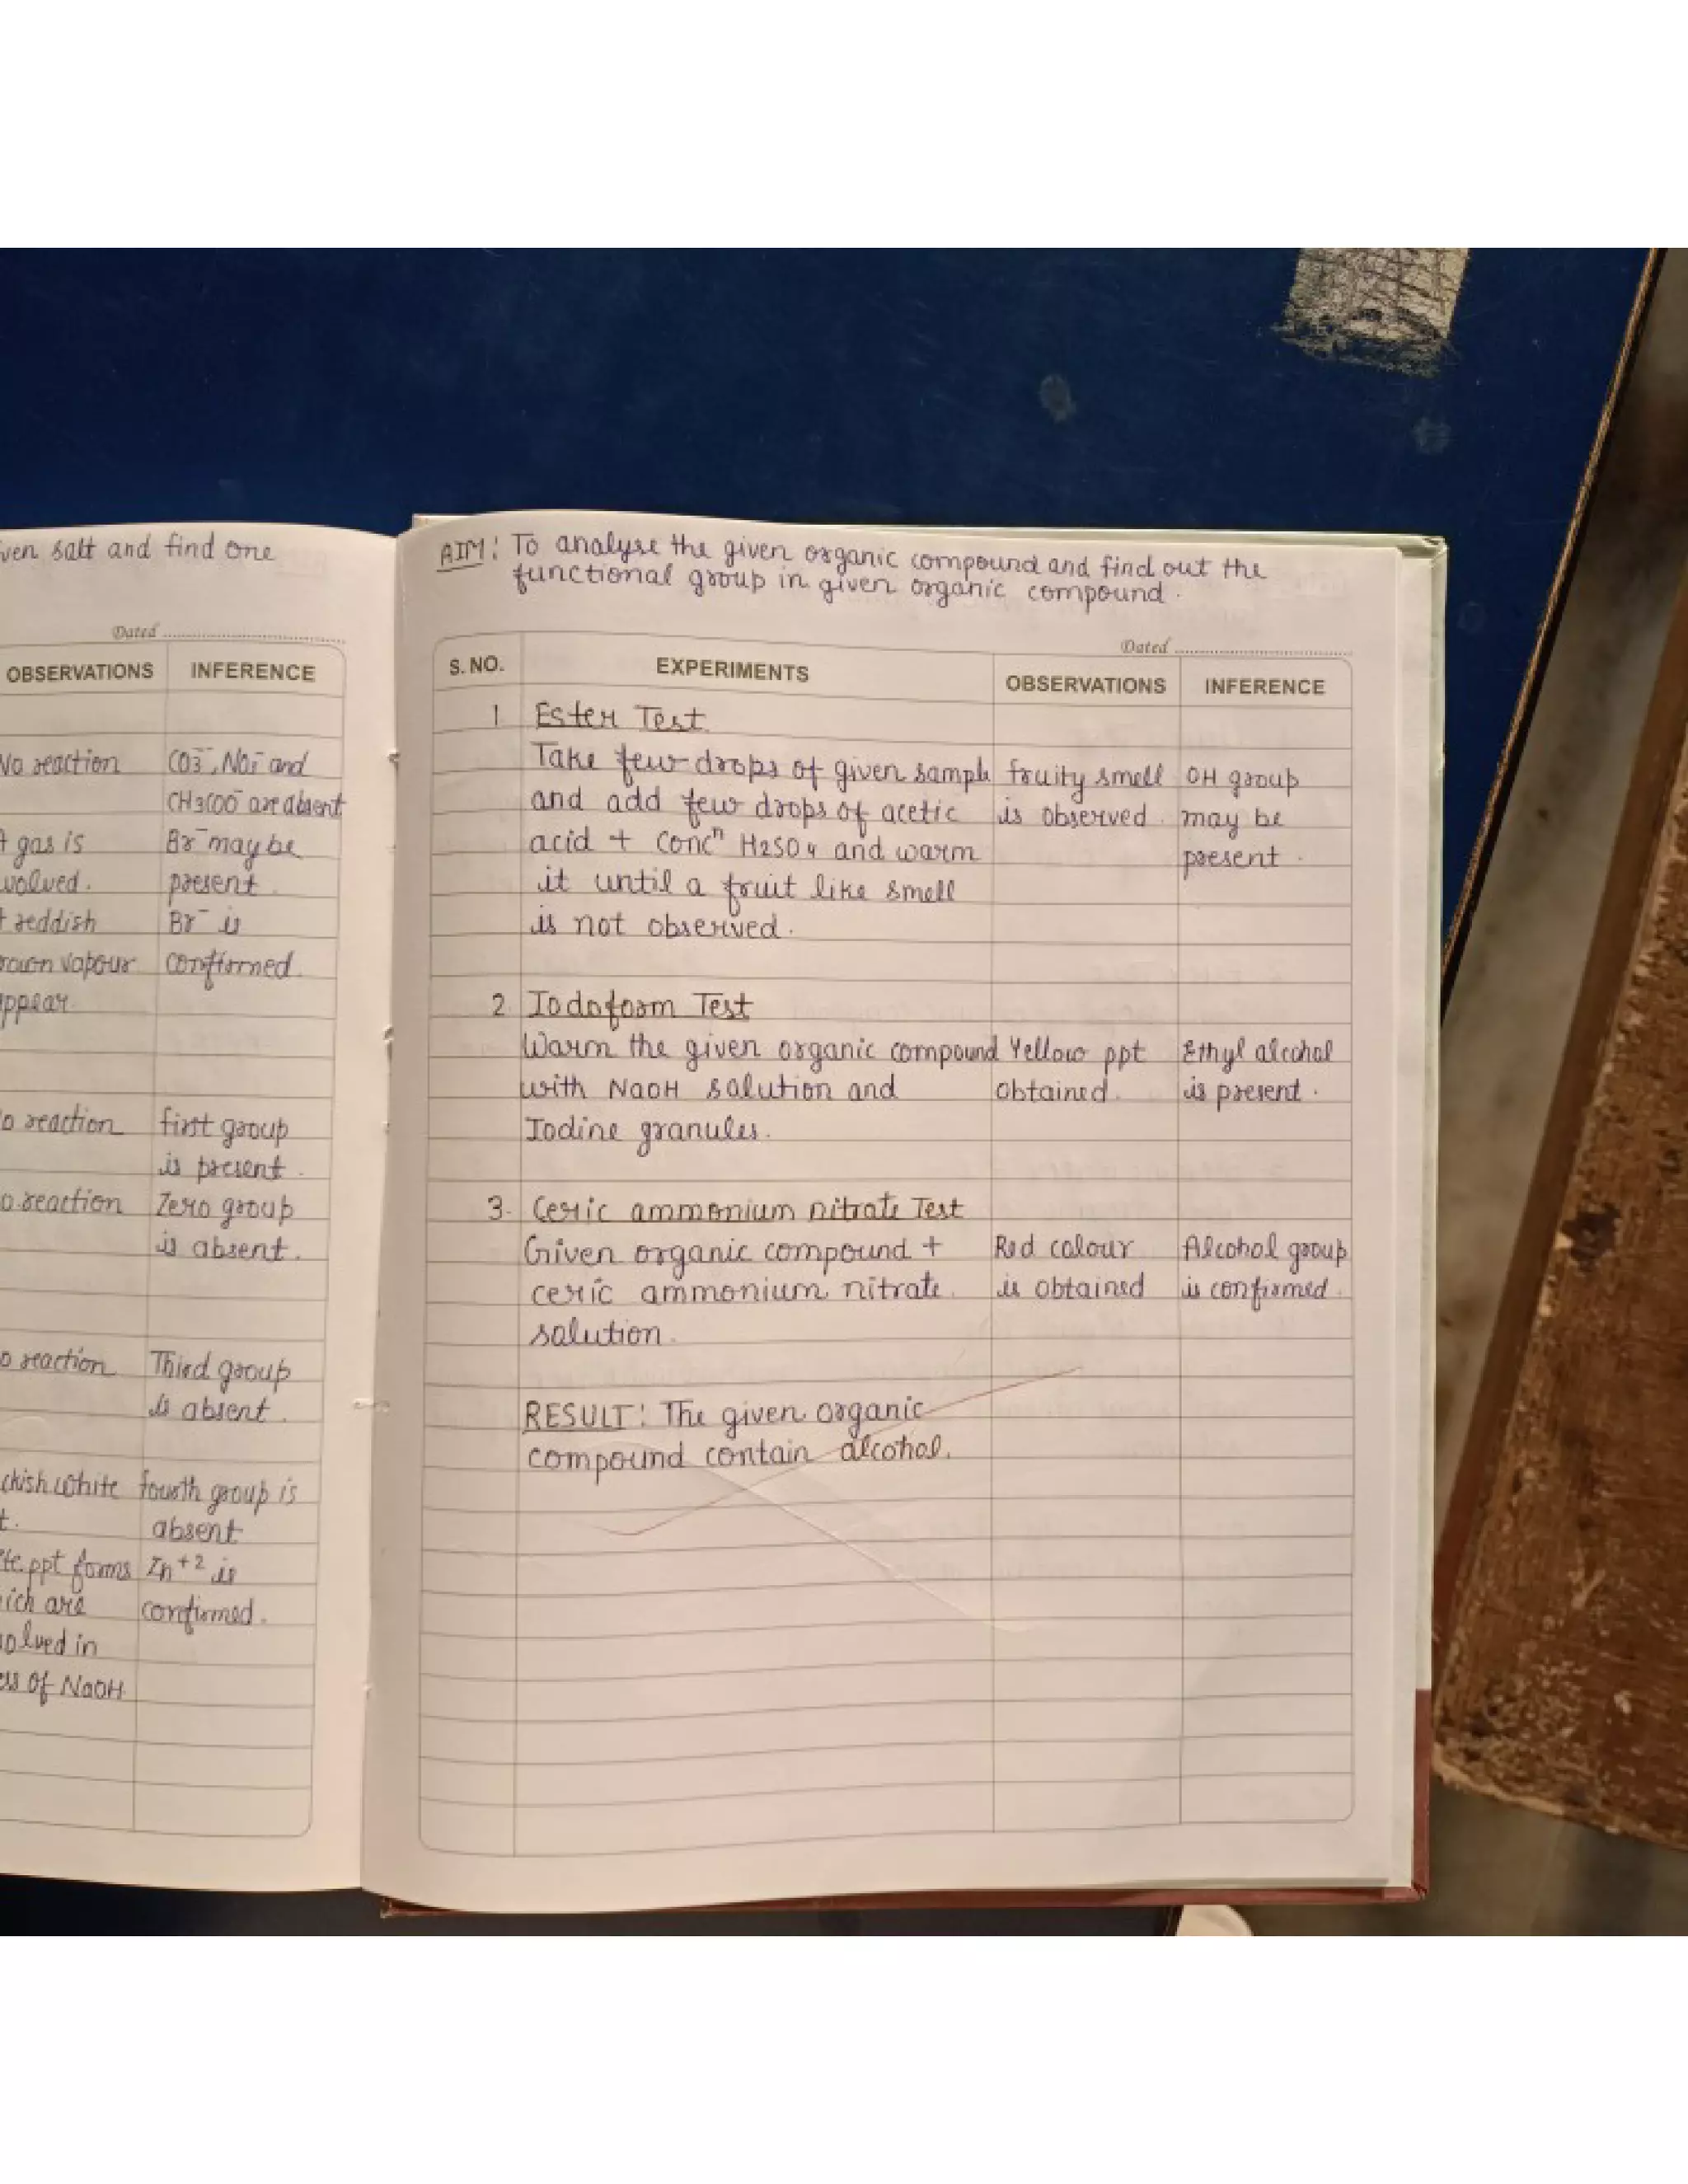 ven salt and find one
Dated
OBSERVATIONS INFERENCE
No reaction CO3--, NO2- and
CH3COO- are absent
gas is Br- may be
volved. present.
reddish Br- is
rown vapour confirmed.
appear.
o reaction first group
is present.
o reaction Zero group
is absent.
o reaction Third group
is absent.
ckish white fourth group is
t. absent
ite ppt forms Zn+2 is
ich are confirmed.
olved in
ess of NaOH
AIM: To analyse the given organic compound and find out the
functional group in given organic compound.
Dated
S. NO. EXPERIMENTS OBSERVATIONS INFERENCE
1 Ester Test
Take few drops of given sample fruity smell OH group
and add few drops of acetic is observed. may be
acid + Concn H2SO4 and warm present.
it until a fruit like smell
is not observed.
2. Iodoform Test
Warm the given organic compound Yellow ppt Ethyl alcohol
with NaOH solution and obtained. is present.
Iodine granules.
3. Ceric ammonium nitrate Test
Given organic compound + Red colour Alcohol group
ceric ammonium nitrate is obtained is confirmed.
solution.
RESULT: The given organic
compound contain alcohol.